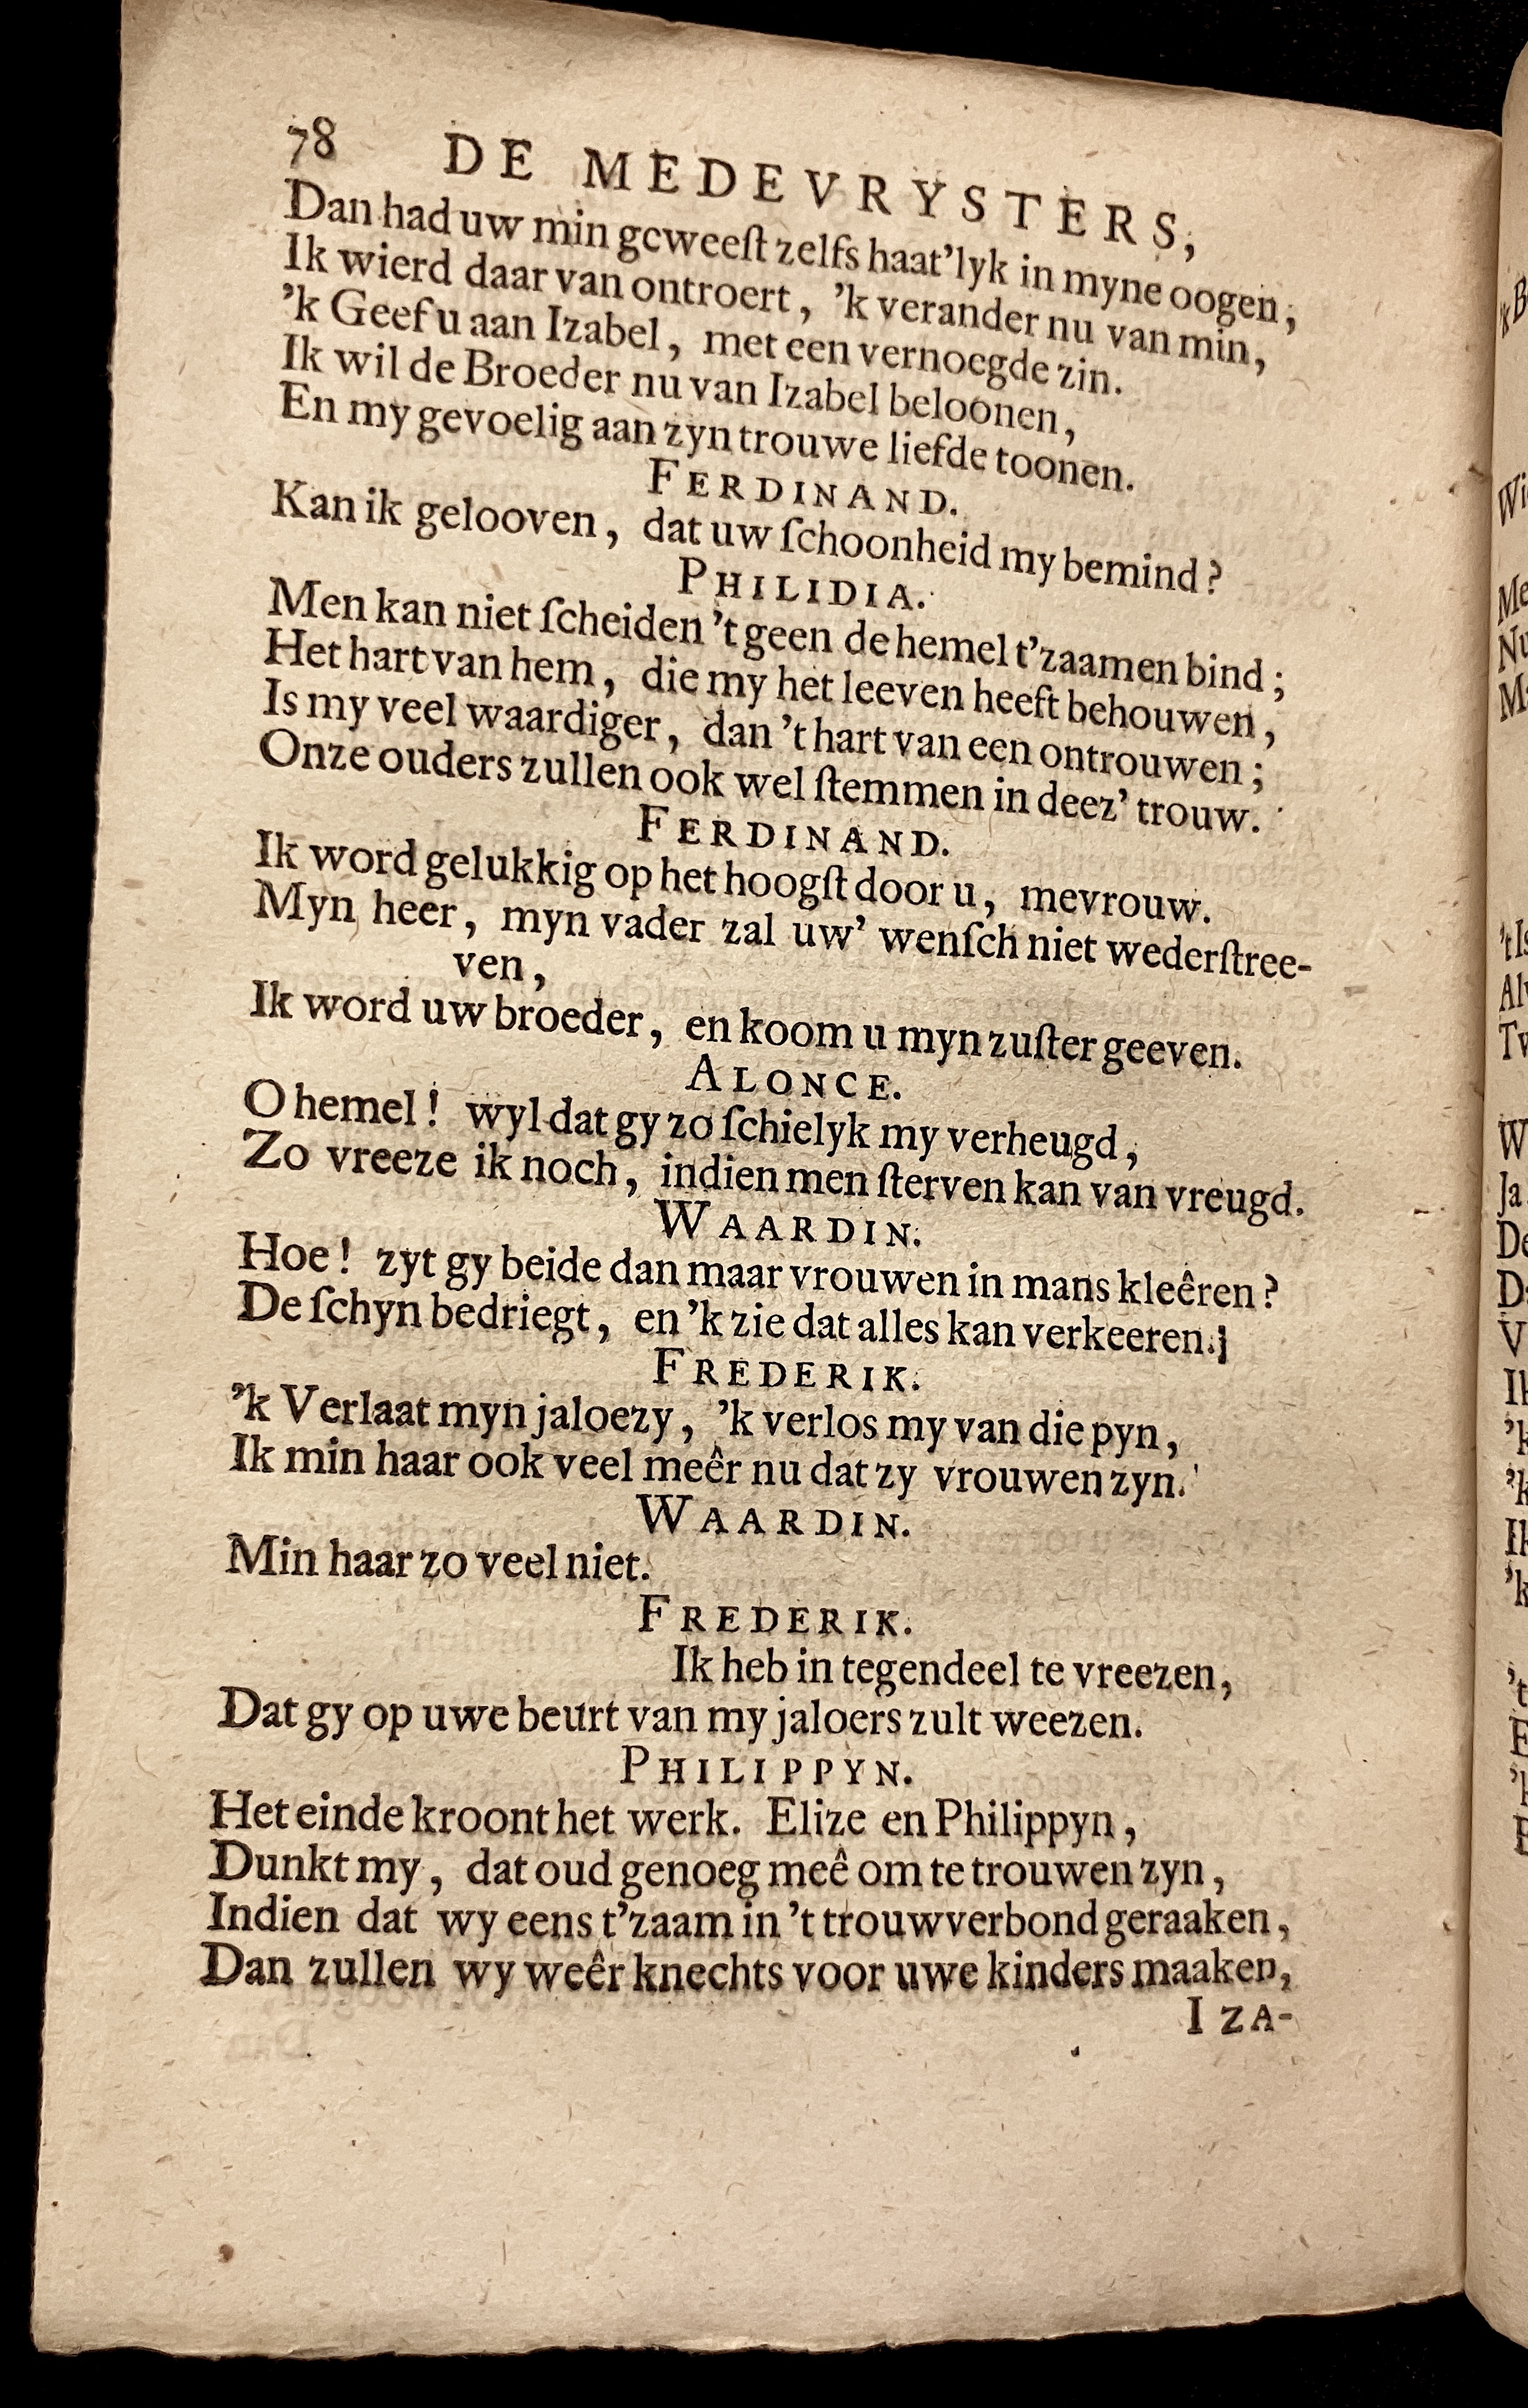 78 DE MEDEVRYSTERS,
Dan had uw min geweeſt zelfs haat'lyk in myne oogen;
Ik wierd daar van ontroert, 'k verander nu van min,
'k Geef u aan Izabel, met een vernoegde zin.
Ik wil de Broeder nu van Izabel beloonen,
En my gevoelig aan zyn trouwe liefde toonen.
FERDINAND.
Kan ik gelooven, dat uw ſchoonheid my bemind?
PHILIDIA.
Men kan niet ſcheiden 't geen de hemel t'zaamen bind;
Het hart van hem, die my het leeven heeft behouwen,
Is my veel waardiger, dan 't hart van een ontrouwen;
Onze ouders zullen ook wel ſtemmen in deez' trouw.
FERDINAND.
Ik word gelukkig op het hoogſt door u, mevrouw.
Myn heer, myn vader zal uw' wenſch niet wederſtree-
ven,
Ik word uw broeder, en koom u myn zuſter geeven.
ALONCE.
O hemel! wyl dat gy zo ſchielyk my verheugd,
Zo vreeze ik noch, indien men ſterven kan van vreugd.
WAARDIN.
Hoe! zyt gy beide dan maar vrouwen in mans kleêren?
De ſchyn bedriegt, en 'k zie dat alles kan verkeeren.]
FREDERIK.
'k Verlaat myn jaloezy, 'k verlos my van die pyn,
Ik min haar ook veel meêr nu dat zy vrouwen zyn.
WAARDIN.
Min haar zo veel niet.
FREDERIK.
Ik heb in tegendeel te vreezen,
Dat gy op uwe beurt van my jaloers zult weezen.
PHILIPPYN.
Het einde kroont het werk. Elize en Philippyn,
Dunkt my, dat oud genoeg meê om te trouwen zyn,
Indien dat wy eens t'zaam in 't trouwverbond geraaken,
Dan zullen wy weêr knechts voor uwe kinders maaken,
IZA-